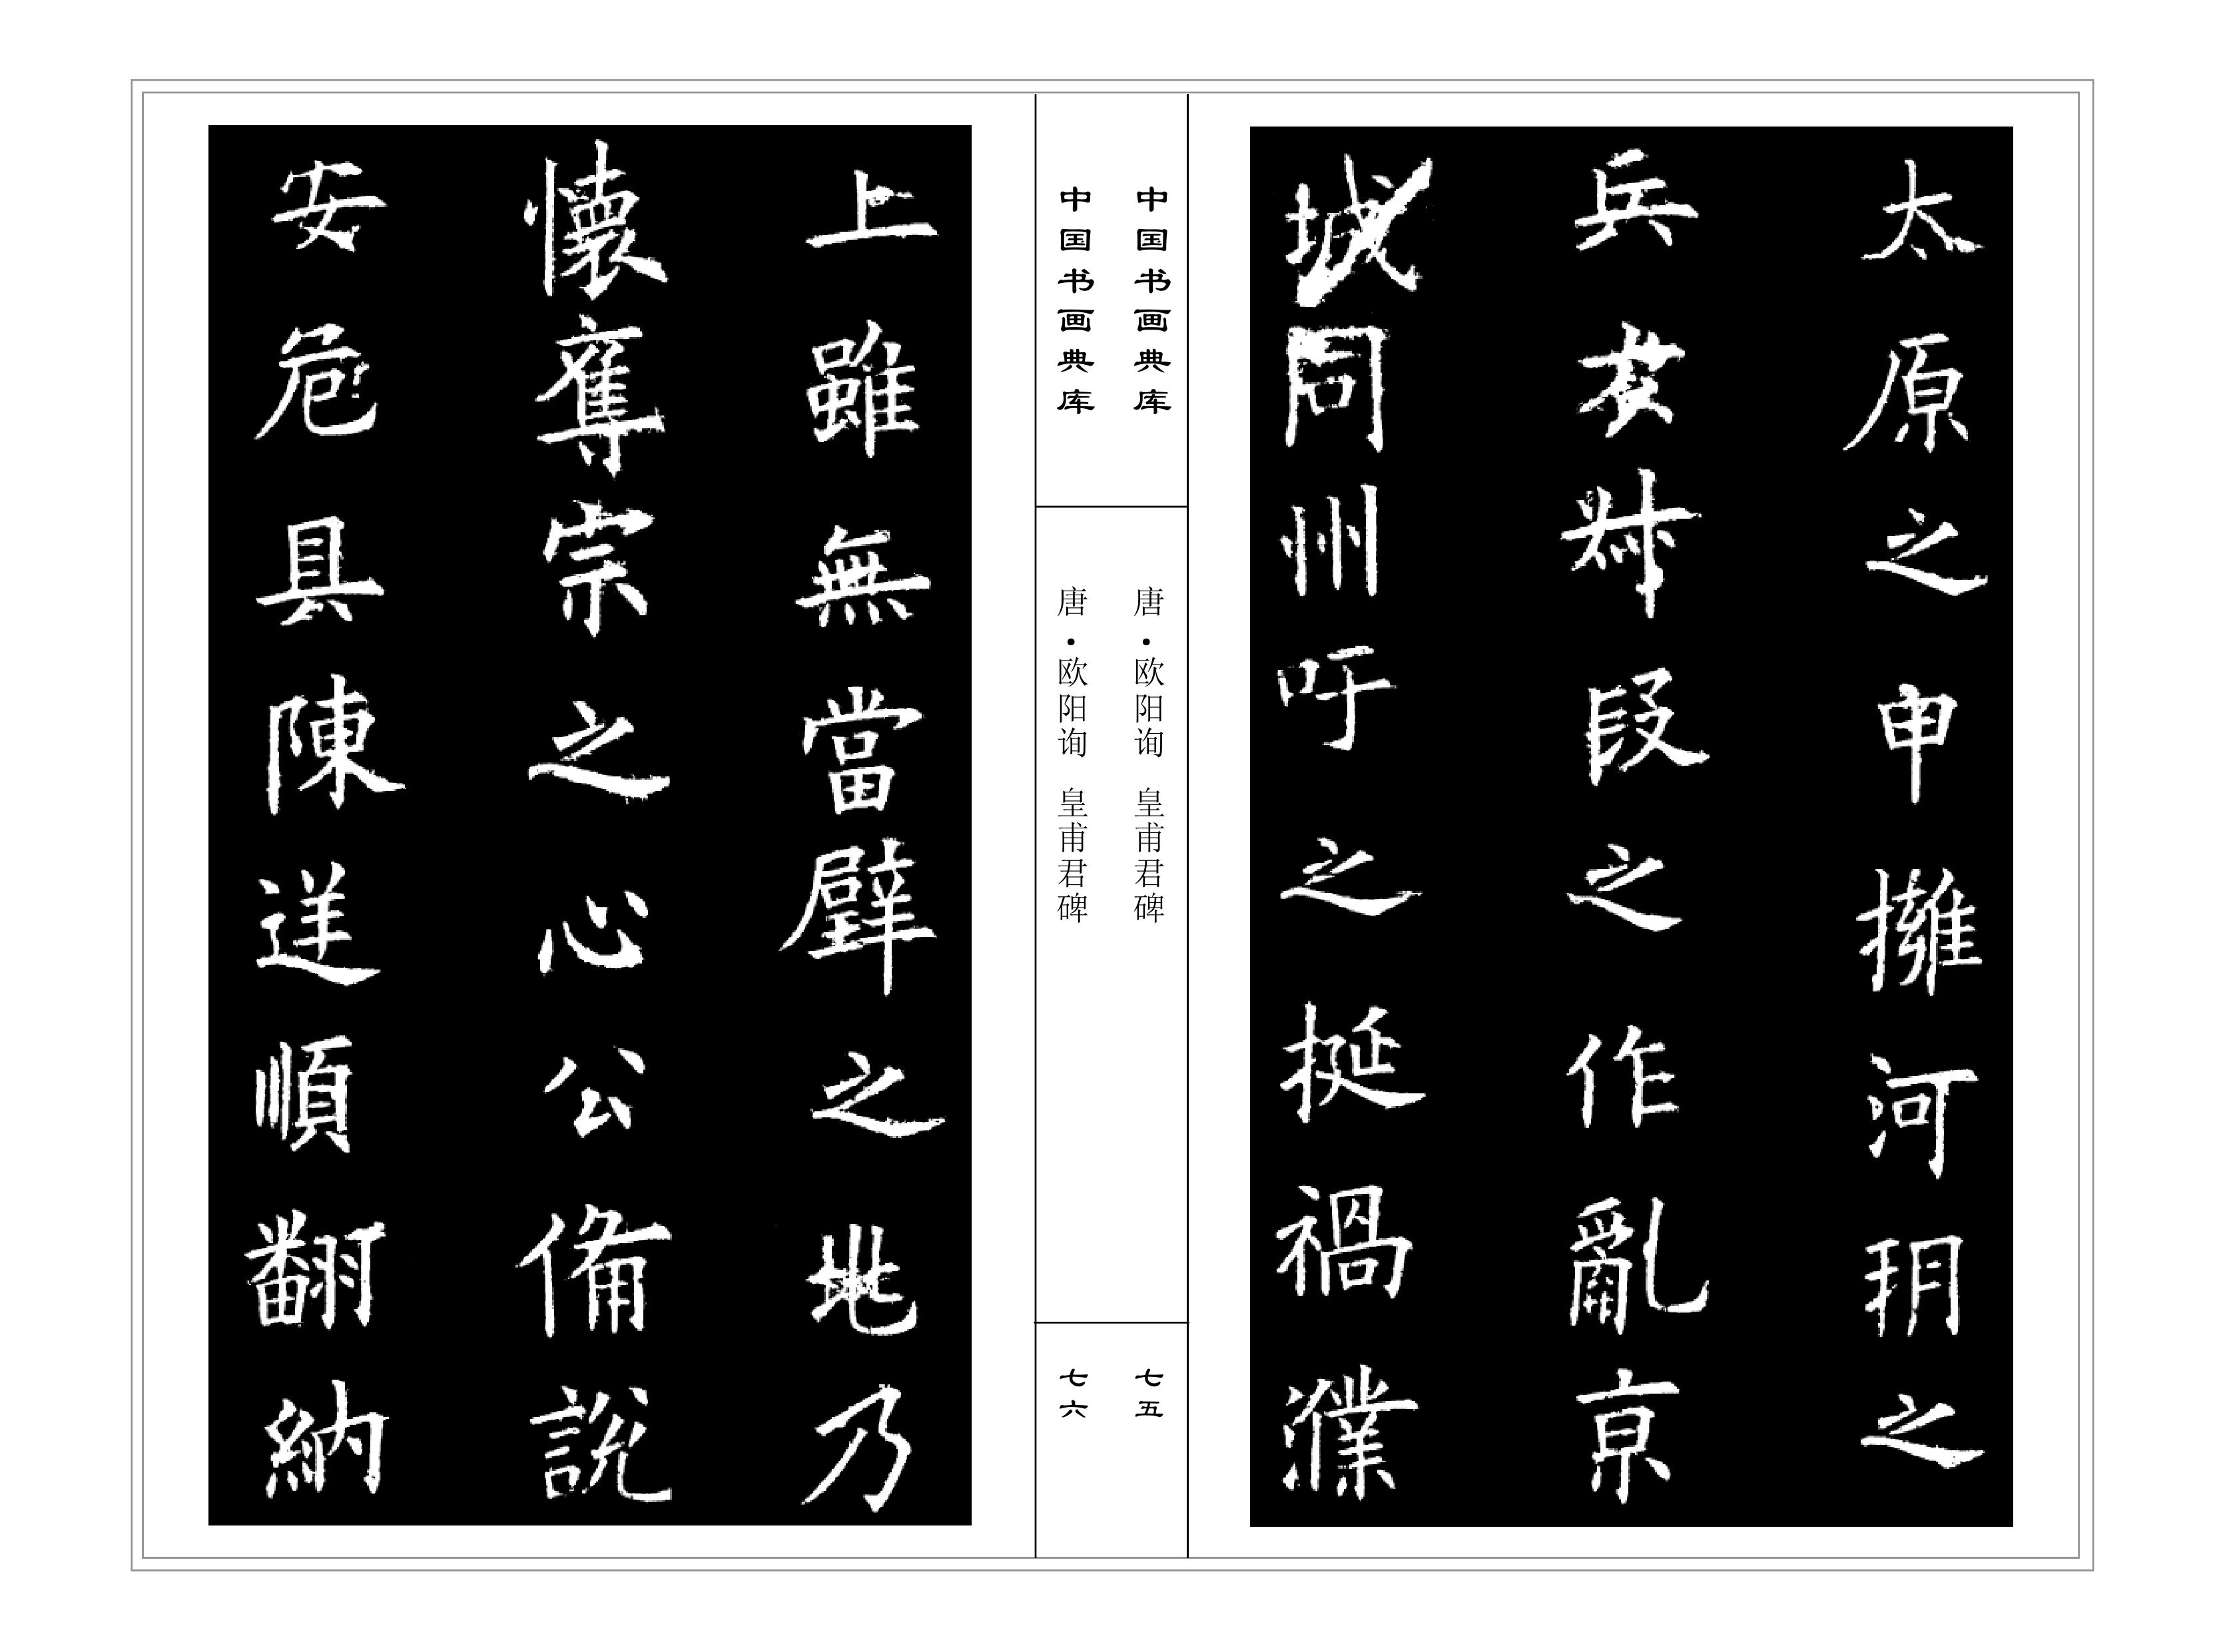 太原之甲擁河朔之
兵方叔段之作亂京
城同州吁之挻禍濮
中国书画典库
唐·欧阳询 皇甫君碑
七五
中国书画典库
唐·欧阳询 皇甫君碑
七六
上雖無當璧之地乃
懷奪宗之心公備說
安危具陳逆順翻納